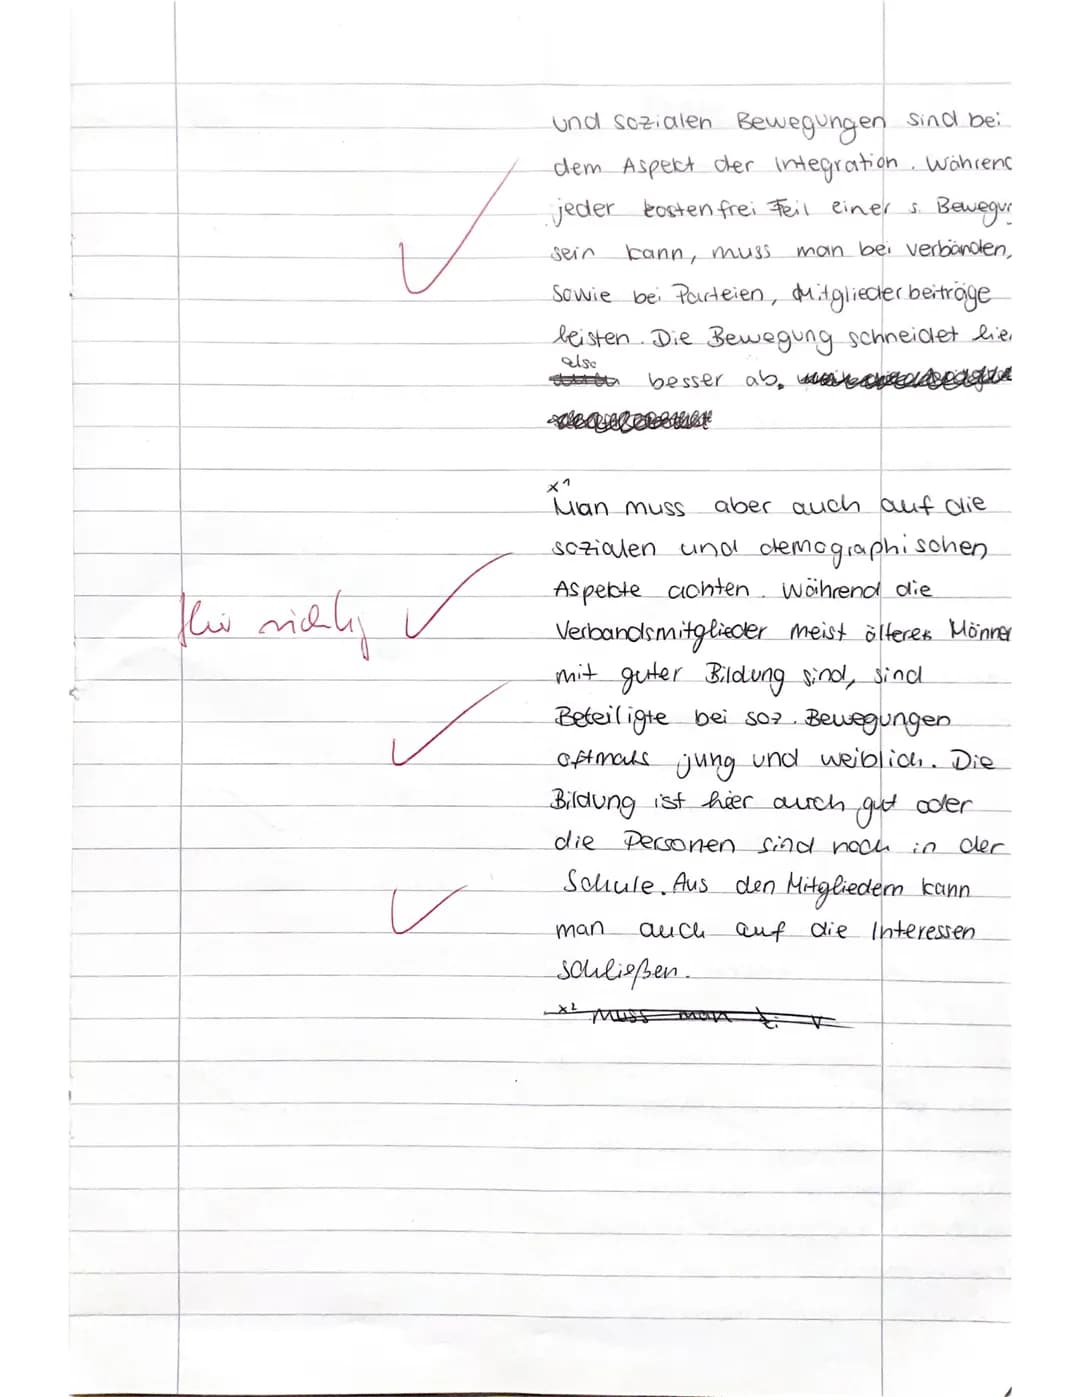 und sozialen Bewegungen sind bei
dem Aspekt der Integration. Während
jeder kostenfrei Teil einer s. Bewegun
sein kann, muss man bei Verbänden,
sowie bei Parteien, Mitgliederbeiträge
leisten. Die Bewegung schneidet hie
also
besser ab.
x1
Man muss aber auch auf die
sozialen und demographischen
Aspekte achten. Während die
Verbandsmitglieder meist älteres Männer
mit guter Bildung sind, sind
Beteiligte bei soz. Bewegungen
oftmals jung und weiblich. Die
Bildung ist hier auch gut oder
die Personen sind noch in der
Schule. Aus den Mitgliedern kann
man auch auf die Interessen
schließen.
x2 muss man
richtig